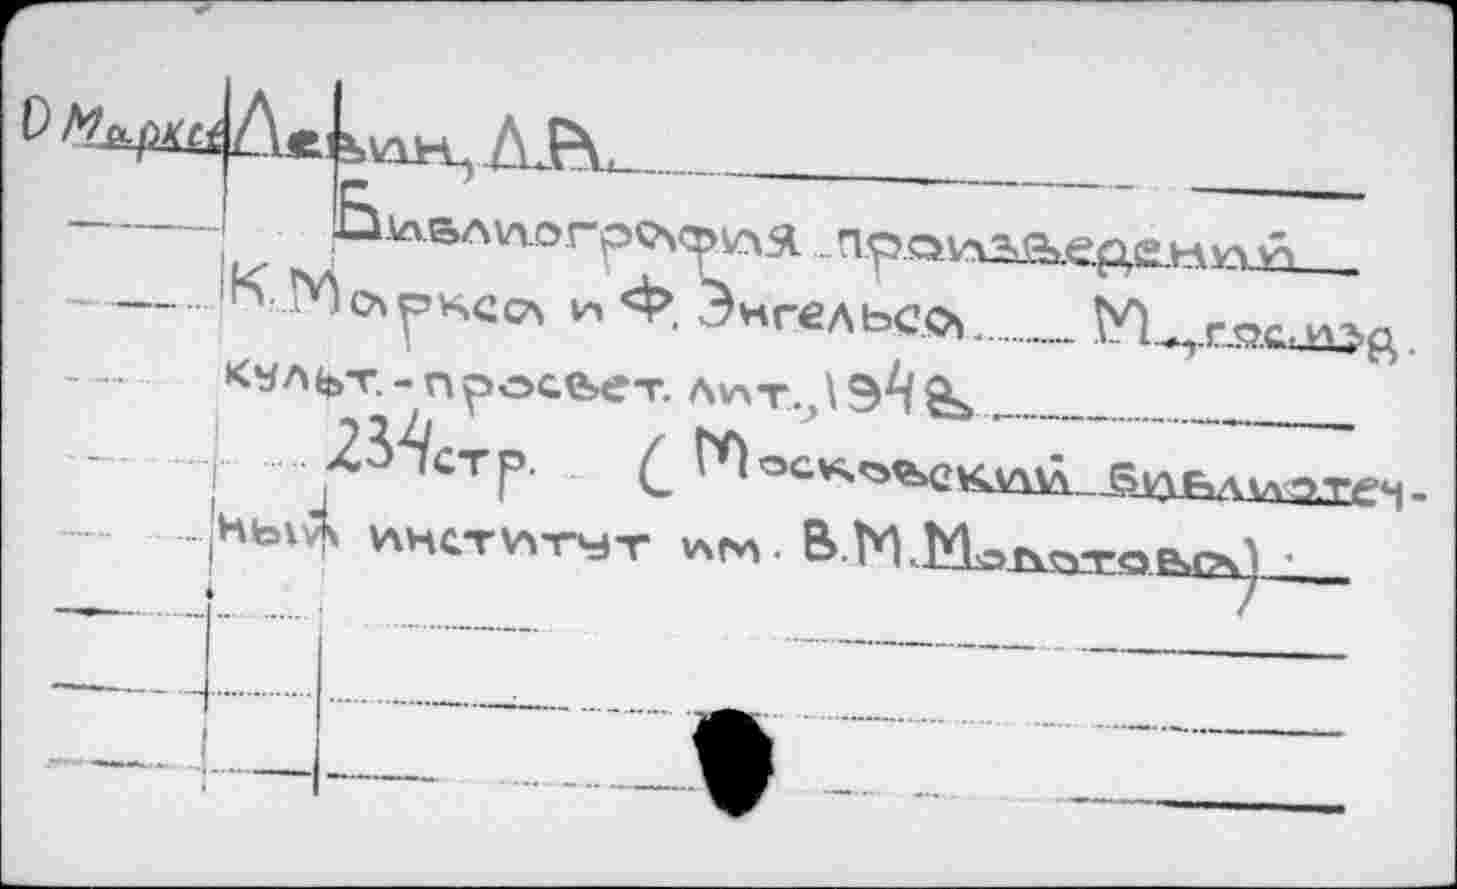 О Маркс
Левин, Л.Я.
Библиография произведений
К. Маркса и Ф. Энгельса. М., гос. изд.
культ.-просвет. лит., 1948,
234 стр. (Московский библиотеч-
ный институт им. В.М. Молотова)